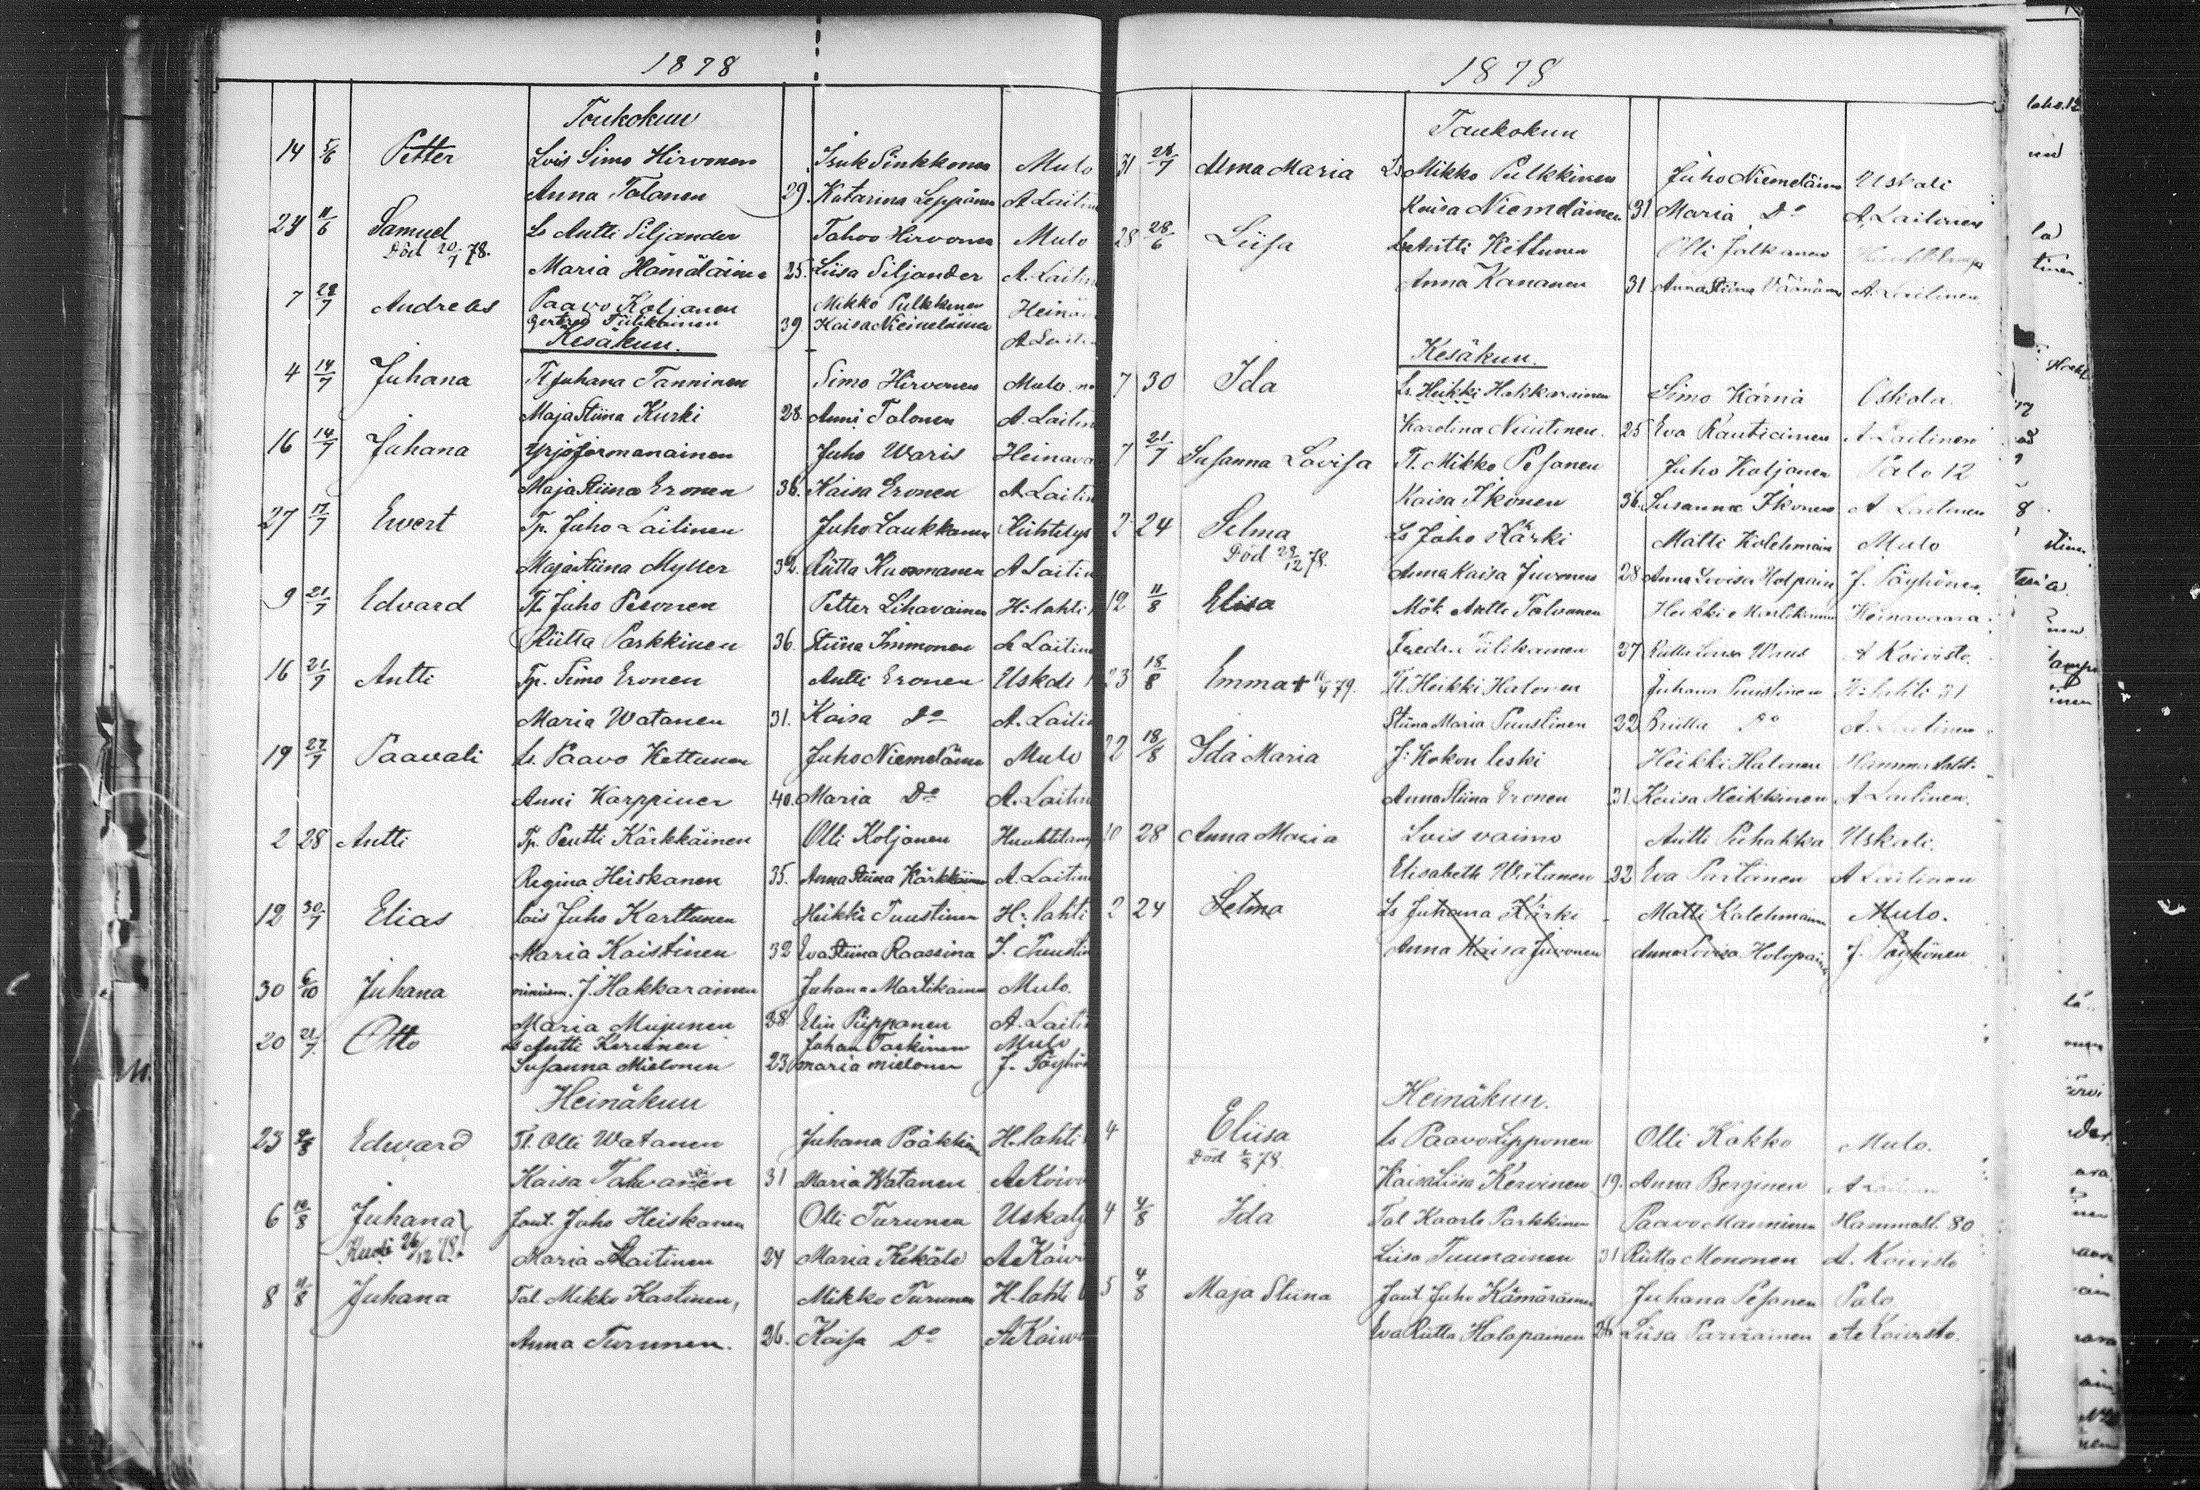 1878
Toukokuu
14 5/6 Petter Lois Simo Hirvonen Isuk Sinkkonen Mulo
Anna Tolanen 29. Katarina Leppänen A Laitin
11/6 Samuel Ls Antti Siljander Tahvo Hirvonen Mulo
Död 20/7 78. Maria Hämäläinen 25. Liisa Siljander A. Laitin
7 /7 Andreas Paavo Koljonen Mikko Pulkkinen Heinäv
Gertrud Tiilikainen 39 Kaisa Niemeläinen A Laitin
Kesäkuu.
4 14/7 Juhana Tl Juhana Tanninen Simo Hirvonen Mulo
Maja Stiina Kurki 28. Anni Tolonen A. Laitin
16 14/7 Juhana Yrjö Jormanainen Juho Waris Heinava
Maja Stiina Eronen 36. Kaisa Eronen A Laitin
27 17/7 Ewert Tp. Juho Laitinen Juho Laukkanen Kiihtelys
Maja Stiina Myller 32. Riitta Kuosmanen A Laitin
9 21/7 Edvard Tp. Juho Pesonen Petter Lihavainen H:lahti
Riitta Parkkinen 36. Stiina Immonen A Laitin
16 21/7 Antti Tp. Simo Eronen Antti Eronen Uskali
Maria Watanen 31. Kaisa Do A. Laitin
19 27/7 Paavali Ls. Paavo Kettunen Juho Niemeläinen Mulo
Anni Karppinen 40. Maria Do A. Laitin
2 28 Antti Tp. Pentti Kärkkäinen Olli Koljonen Huuhtilamp
Regina Heiskanen 35. Anna Stiina Kärkkäinen A. Laitin
12 30/7 Elias lois Juho Karttunen Heikki Puustinen H:lahti
Maria Kaistinen 32 Eva Stiina Raassina
30 6/10 Juhana J. Hakkarainen Juhana Martikainen Mulo.
Maria Mujunen 38 Elin Piipponen A. Laiti
20 21/7 Otto Ls Antti Kervinen Johan Taskinen Mulo
Susanna Mielonen 23 Maria Mielonen J. Pöyhö
Heinäkuu
23 4/8 Edward Tl. Olli Watanen Juhana Pääkkönen H:lahti
Kaisa 31 Maria Watanen A Koivi
6 10/8 Juhana Juho Heiskanen Olli Turunen Uskali
Kuoli 26/12 78. Maria Laitinen 24 Maria Kekäle A Koivi
8 11/8 Juhana Tal Mikko Kastinen, Mikko Turunen H:lahti
Anna Turunen. 26. Kaisa Do A Koivi
1878
Toukokuu
31 28/7 Alma Maria Ls Mikko Pulkkinen Juho Niemeläinen Uskali
Kaisa Niemeläinen 31 Maria Do A Laitinen
28 28/6 Liisa Ls Antti Kettunen Olli Jalkanen
Anna Kananen 31 Anna Stiina Väänänen A. Laitinen
Kesäkuu.
7 30 Ida Ls. Heikki Hakkarainen Simo Kärnä Oskola
Karolina Nuutinen. 25 Eva Rautiainen A Laitinen
7 21/7 Susanna Lovisa Tl. Mikko Pesonen Juho Koljonen Palo 12
Kaisa Ikonen 36. Susanna Ikonen A Laitinen
2 24 Selma Ls Juho Kärki Matti Kolehmain Mulo
Död 29/12 78. Anna Kaisa Juvonen 28 Anna Lovisa Holpain J. Pöyhönen.
12 11/8 Elisa Mök Antti Tolvanen Heikki Martikainen Heinävaara
Fredr. Tiilikainen 27 Riitta Lovisa Waris A Koivisto.
23 18/8 Emma + 11/4 79. Tl. Heikki Halonen Juhana Puustinen H:lahti 31
Stiina Maria Puustinen 22 Briitta Do A. Laitinen
22 18/8 Ida Maria J: Kokon leski Heikki Halonen Hammaslaht.
Anna Stiina Eronen 31. Kaisa Heikkinen A Laitinen.
10 28 Anna Maria Lois vaimo Antti Puhakka Uskali.
Elisabeth Wätanen 32 Eva Partanen A Laitinen
2 24 Selma Ls Juhana Kärki Matti Kolehmainen Mulo.
Anna Kaisa Juvonen Anna Lovisa Holopain J. Pöyhönen
Heinäkuu.
4 Eliisa Ls Paavo Lipponen Olli Kokko Mulo.
Död 78. Kaisa Liisa Kervinen 19. Anna Berginen A Laitinen
4 4/8 Ida Tal Kaarle Parkkinen Paavo Manninen Hammasl. 80
Liisa Tuunainen 31 Riitta Mononen A. Koivisto
5 4/8 Maja Stiina Juho Kämäräinen Juhana Pesonen Palo
Eva Riitta Holopainen 26 Liisa Parviainen A Koivisto.